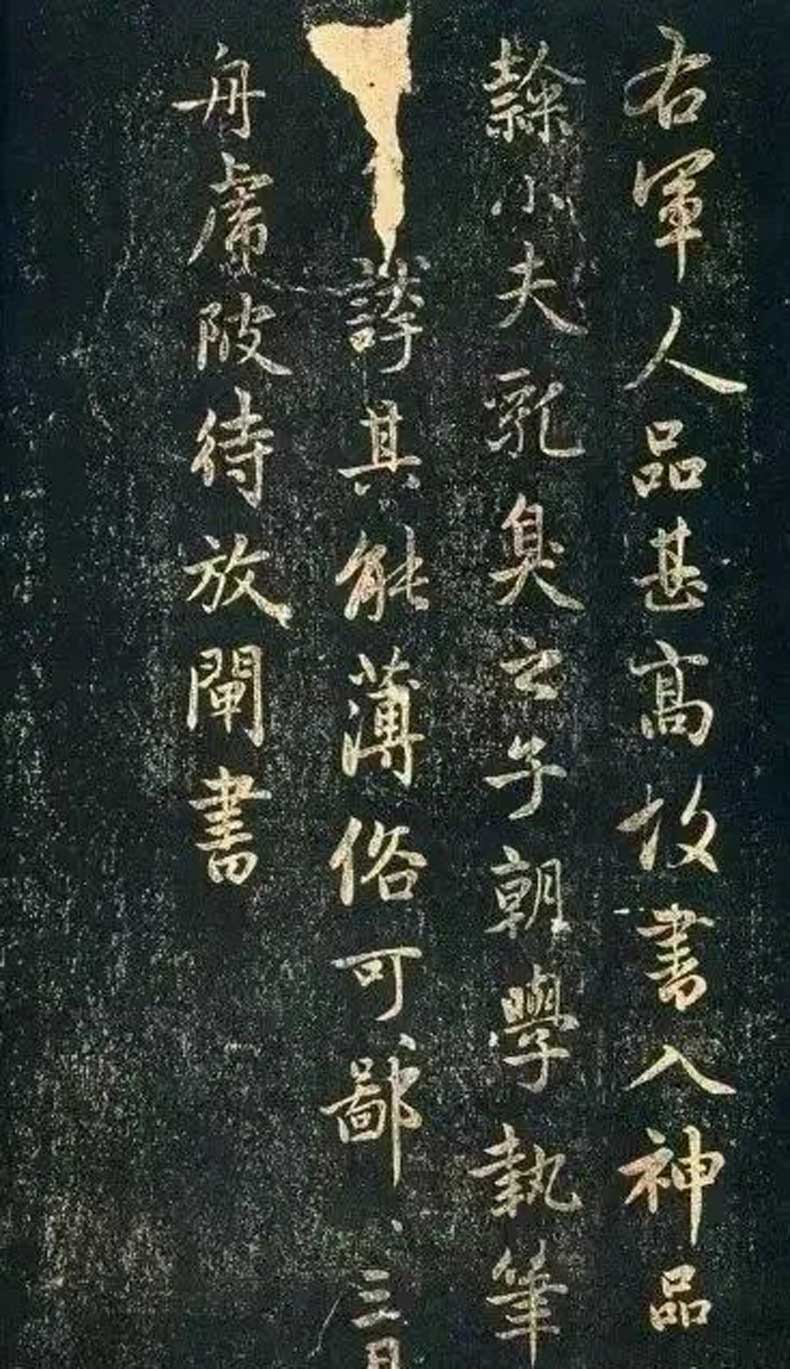 右軍人品甚高故書入神品
隸小夫乳臭之子朝學執筆
誇其能薄俗可鄙三
舟虎陂待放閘書